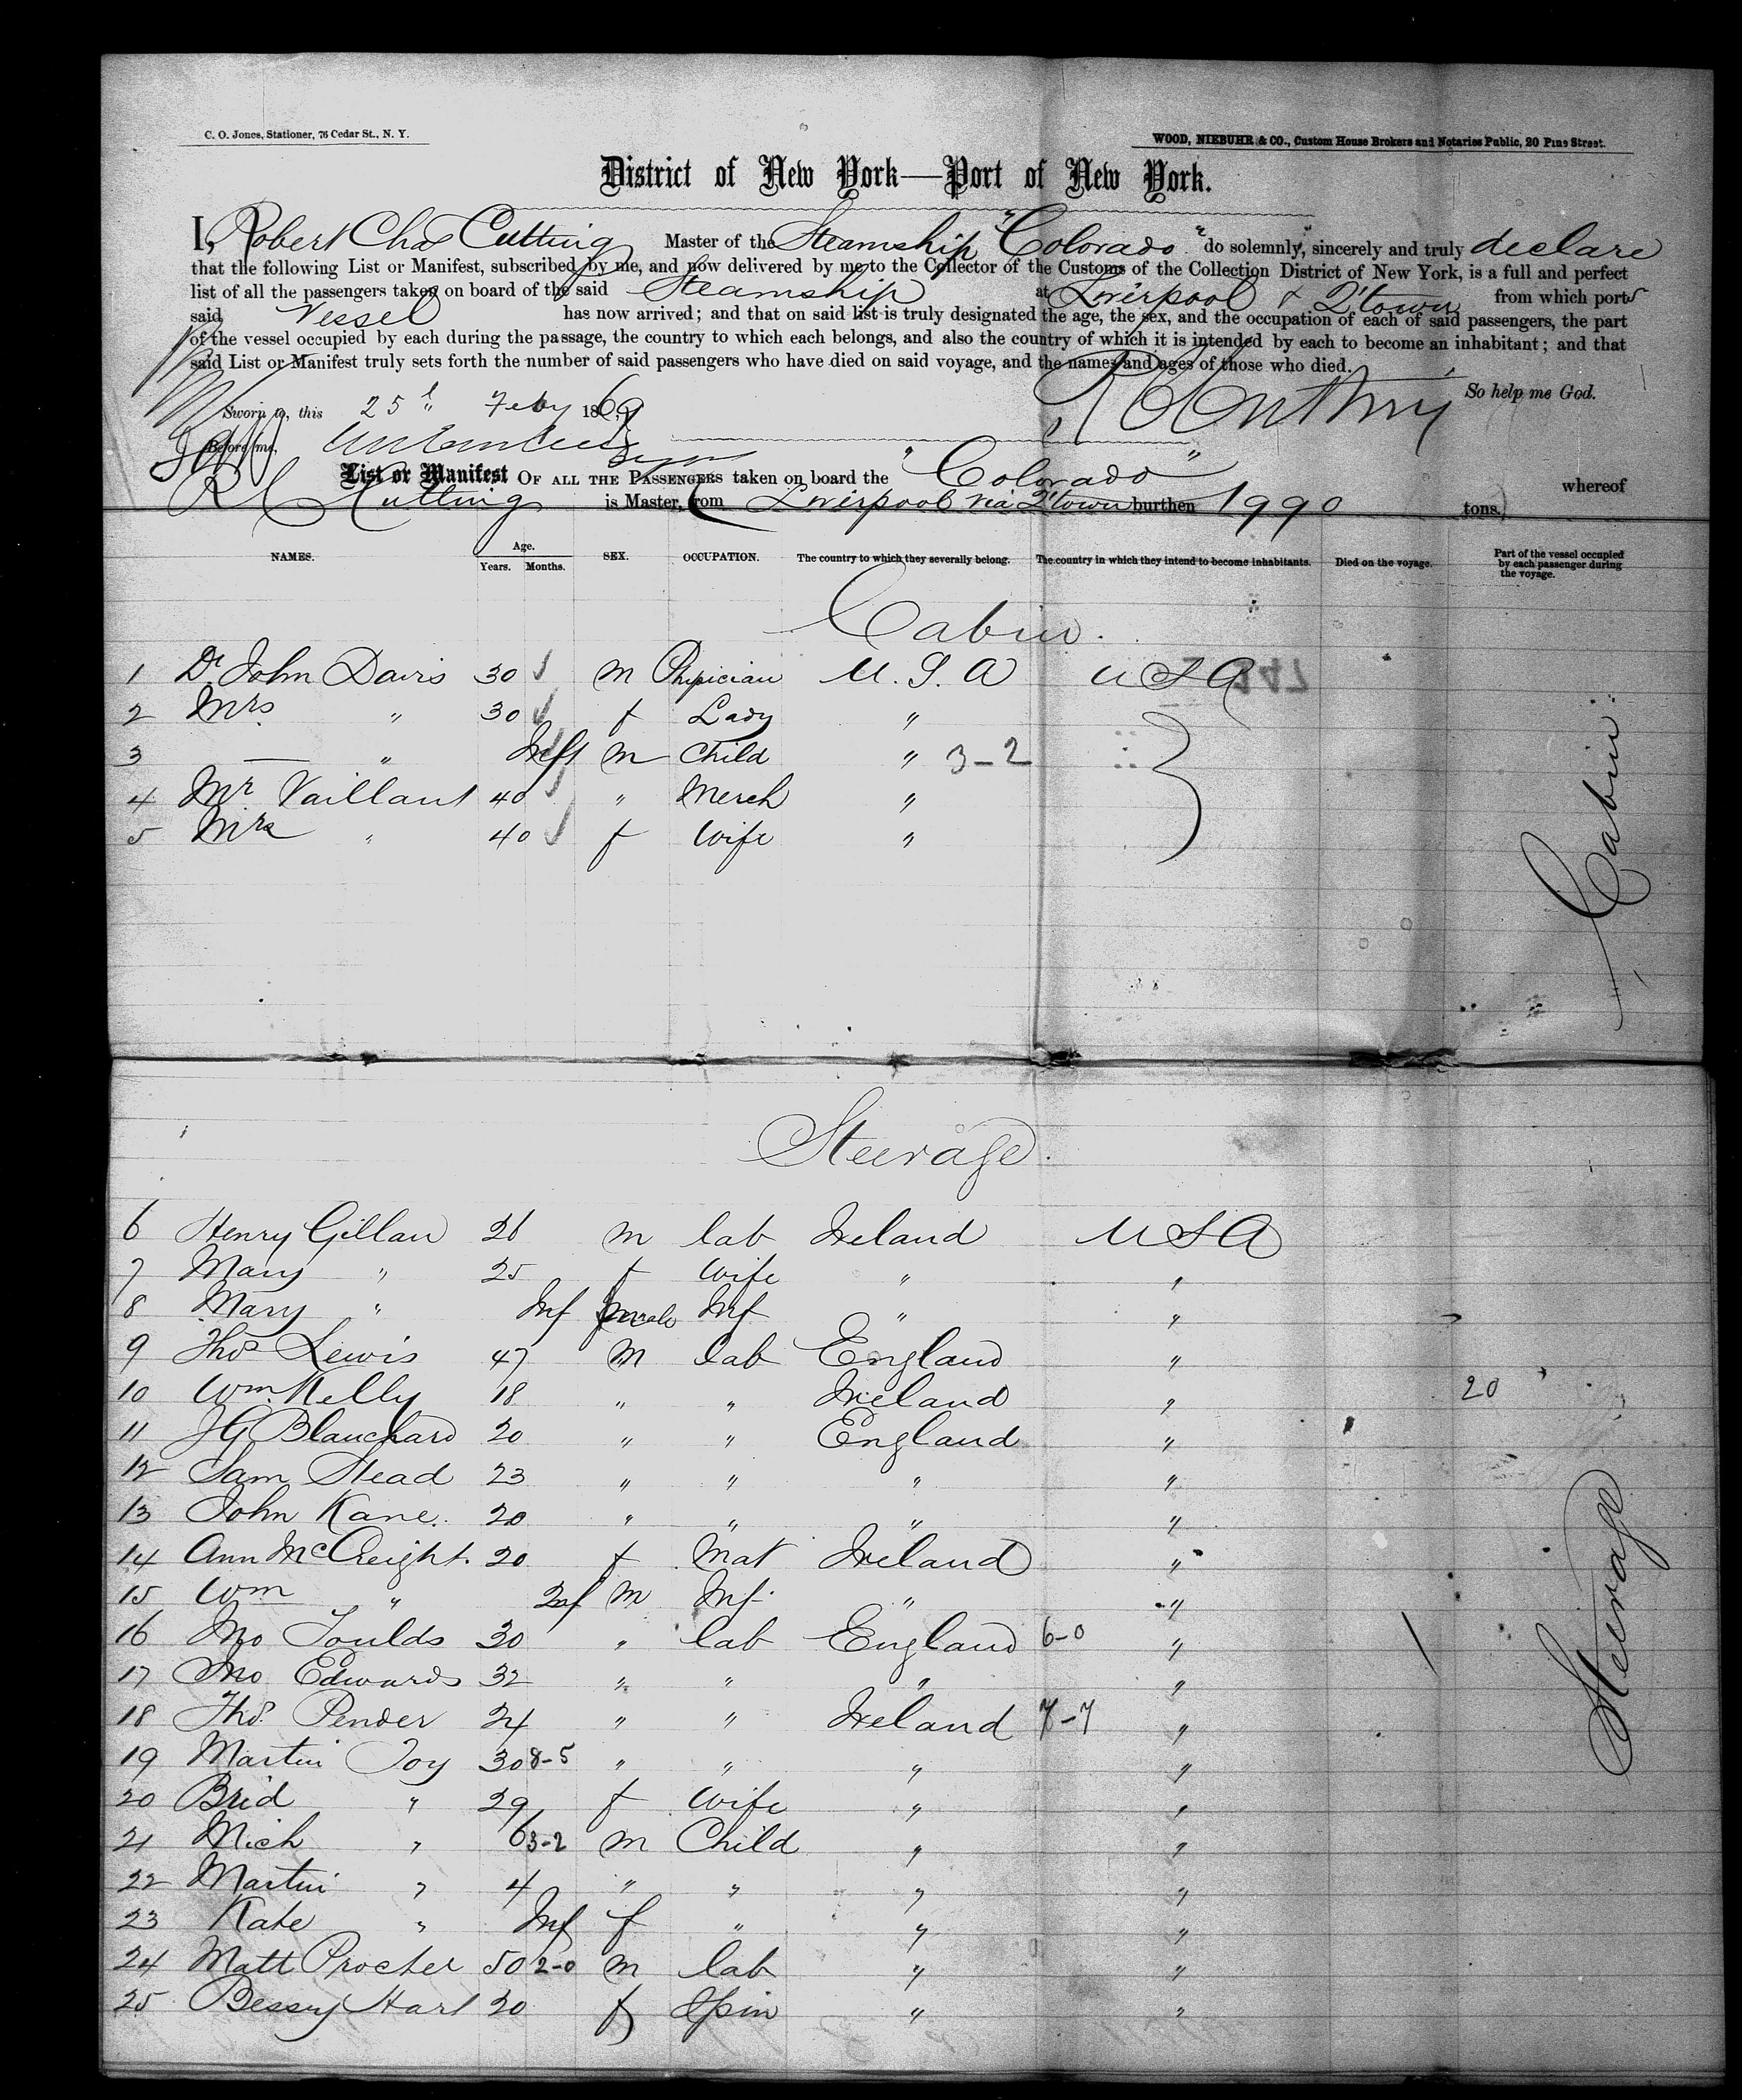 C. O. Jones, Stationer, 76 Cedar St., N. Y.
WOOD, NIEBUHR & CO., Custom House Brokers and Notaries Public, 20 Pine Street.
District of New York—Port of New York.
I, Robert Chas Cutting Master of the Steamship "Colorado" do solemnly, sincerely and truly declare
that the following List or Manifest, subscribed by me, and now delivered by me to the Collector of the Customs of the Collection District of New York, is a full and perfect
list of all the passengers taken on board of the said Steamship at Liverpool & Q'town from which ports
said Vessel has now arrived; and that on said list is truly designated the age, the sex, and the occupation of each of said passengers, the part
of the vessel occupied by each during the passage, the country to which each belongs, and also the country of which it is intended by each to become an inhabitant; and that
said List or Manifest truly sets forth the number of said passengers who have died on said voyage, and the names and ages of those who died.
So help me God.
Sworn to, this 25 " Feby 1869
R C Cutting
Before me,
List or Manifest OF ALL THE PASSENGERS taken on board the "Colorado" whereof
R C Cutting is Master, from Liverpool via Q'town burthen 1990 tons.
NAMES. Age. Years. Months. SEX. OCCUPATION. The country to which they severally belong. The country in which they intend to become inhabitants. Died on the voyage. Part of the vessel occupied by each passenger during the voyage.
Cabin.
1 Dr John Davis 30 m Physician U.S.A USA
2 Mrs " 30 f Lady "
3 — " Inft m Child " 3-2
4 Mr Vaillant 40 " Merch "
5 Mrs " 40 f Wife "
Cabin
Steerage.
6 Henry Gillan 26 m lab Ireland USA
7 Mary " 25 f Wife " "
8 Mary " Inf Inf " "
9 Thos Lewis 47 m lab England "
10 Wm Kelly 18 " " Ireland " 20
11 JG Blanchard 20 " " England "
12 Sam Stead 23 " " " "
13 John Kane. 20 " " " "
14 Ann McCreight. 20 f Mat Ireland "
15 Wm " Inf m Inf. " "
16 Jno Toulds 30 " lab England 6-0 "
17 Jno Edwards 32 " " " "
18 Thos. Pender 24 " " Ireland 7-7 "
19 Martin Toy 30 8-5 " " " "
20 Brid " 29 f Wife " "
21 Mich " 6 3-2 m Child " "
22 Martin " 4 " " " "
23 Kate " Inf f " " "
24 Matt Procter 50 2-0 m lab " "
25 Bessy Hart 20 f Spin " "
Steerage